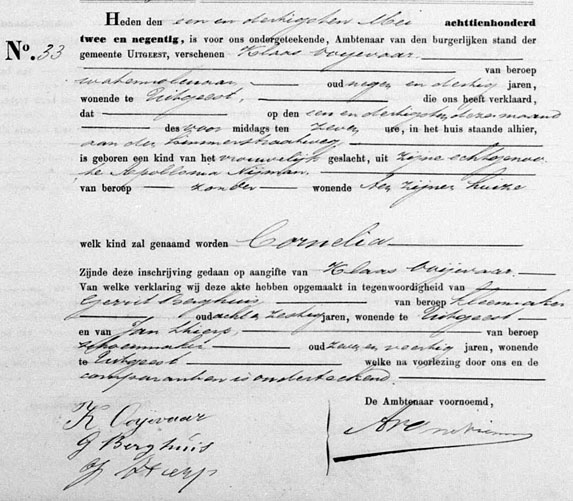 Heden den een en dertigsten Mei achttienhonderd
twee en negentig, is voor ons ondergeteekende, Ambtenaar van den burgerlijken stand der
No. 33 gemeente UITGEEST, verschenen Klaas Ooijevaar
van beroep
watermolenaar, oud negen en dertig jaren,
wonende te Uitgeest, die ons heeft verklaard,
dat op den een en dertigsten dezer maand
des voor middags ten zeven ure, in het huis staande alhier,
aan den Limmerstraatweg
is geboren een kind van het vrouwelijk geslacht, uit zijne echtgenoo-
te Apollonia Nijman
van beroep zonder wonende ten zijnen huize
welk kind zal genaamd worden Cornelia
Zijnde deze inschrijving gedaan op aangifte van Klaas Ooijevaar
Van welke verklaring wij deze akte hebben opgemaakt in tegenwoordigheid van
Gerrit Berghuis van beroep kleermaker
oud acht en zestig jaren, wonende te Uitgeest
en van Jan van beroep
schoenmaker oud zeven en veertig jaren, wonende
te Uitgeest welke na voorlezing door ons en de
comparanten is onderteekend.
De Ambtenaar voornoemd,
K Ooyevaar
G Berghuis